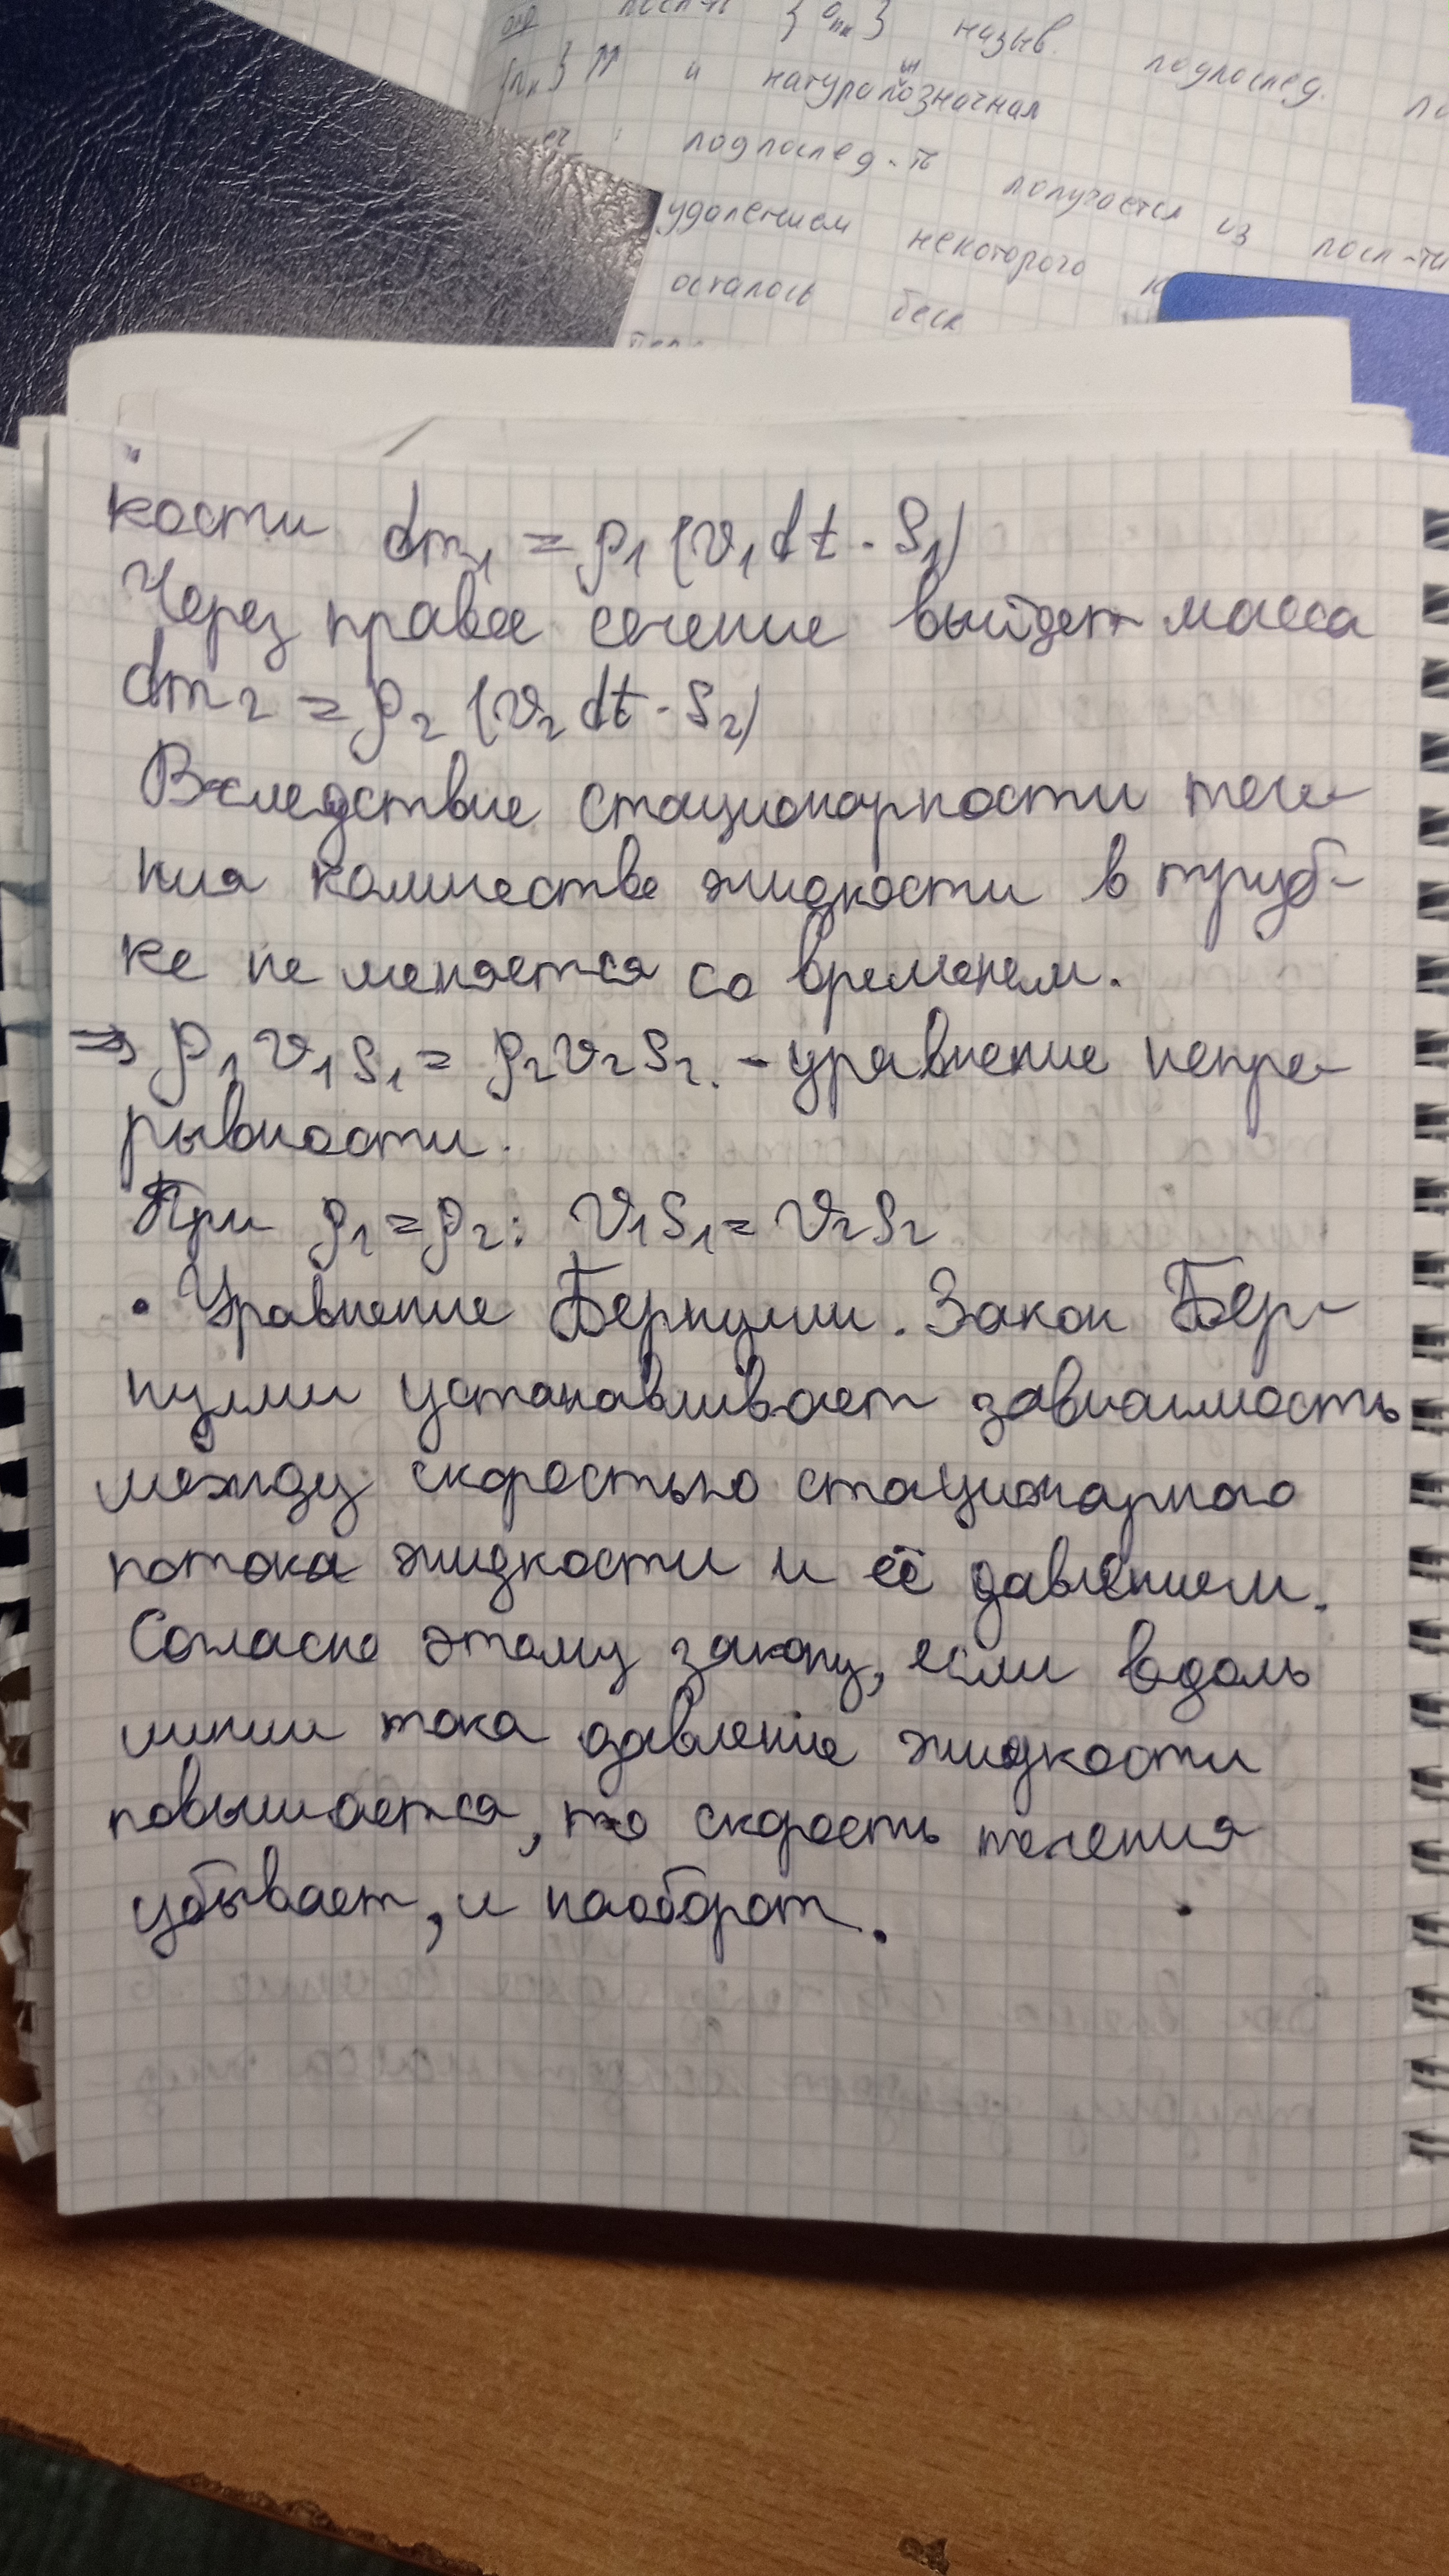 назыв. подпослед.
и натуральнозначная
подпослед-ть получается из посл-ти
удалением некоторого
осталось беск
кости dm₁ = ρ₁ (v₁dt · S₁)
Через правое сечение выйдет масса
dm₂ = ρ₂ (v₂ dt · S₂)
Вследствие стационарности тече-
ния количество жидкости в труб-
ке не меняется со временем.
⇒ ρ₁ v₁ S₁ = ρ₂ v₂ S₂. - уравнение непре-
рывности.
При ρ₁ = ρ₂: v₁S₁ = v₂S₂
• Уравнение Бернулли. Закон Бер-
нулли устанавливает зависимость
между скоростью стационарного
потока жидкости и её давлением.
Согласно этому закону, если вдоль
линии тока давление жидкости
повышается, то скорость течения
убывает, и наоборот.